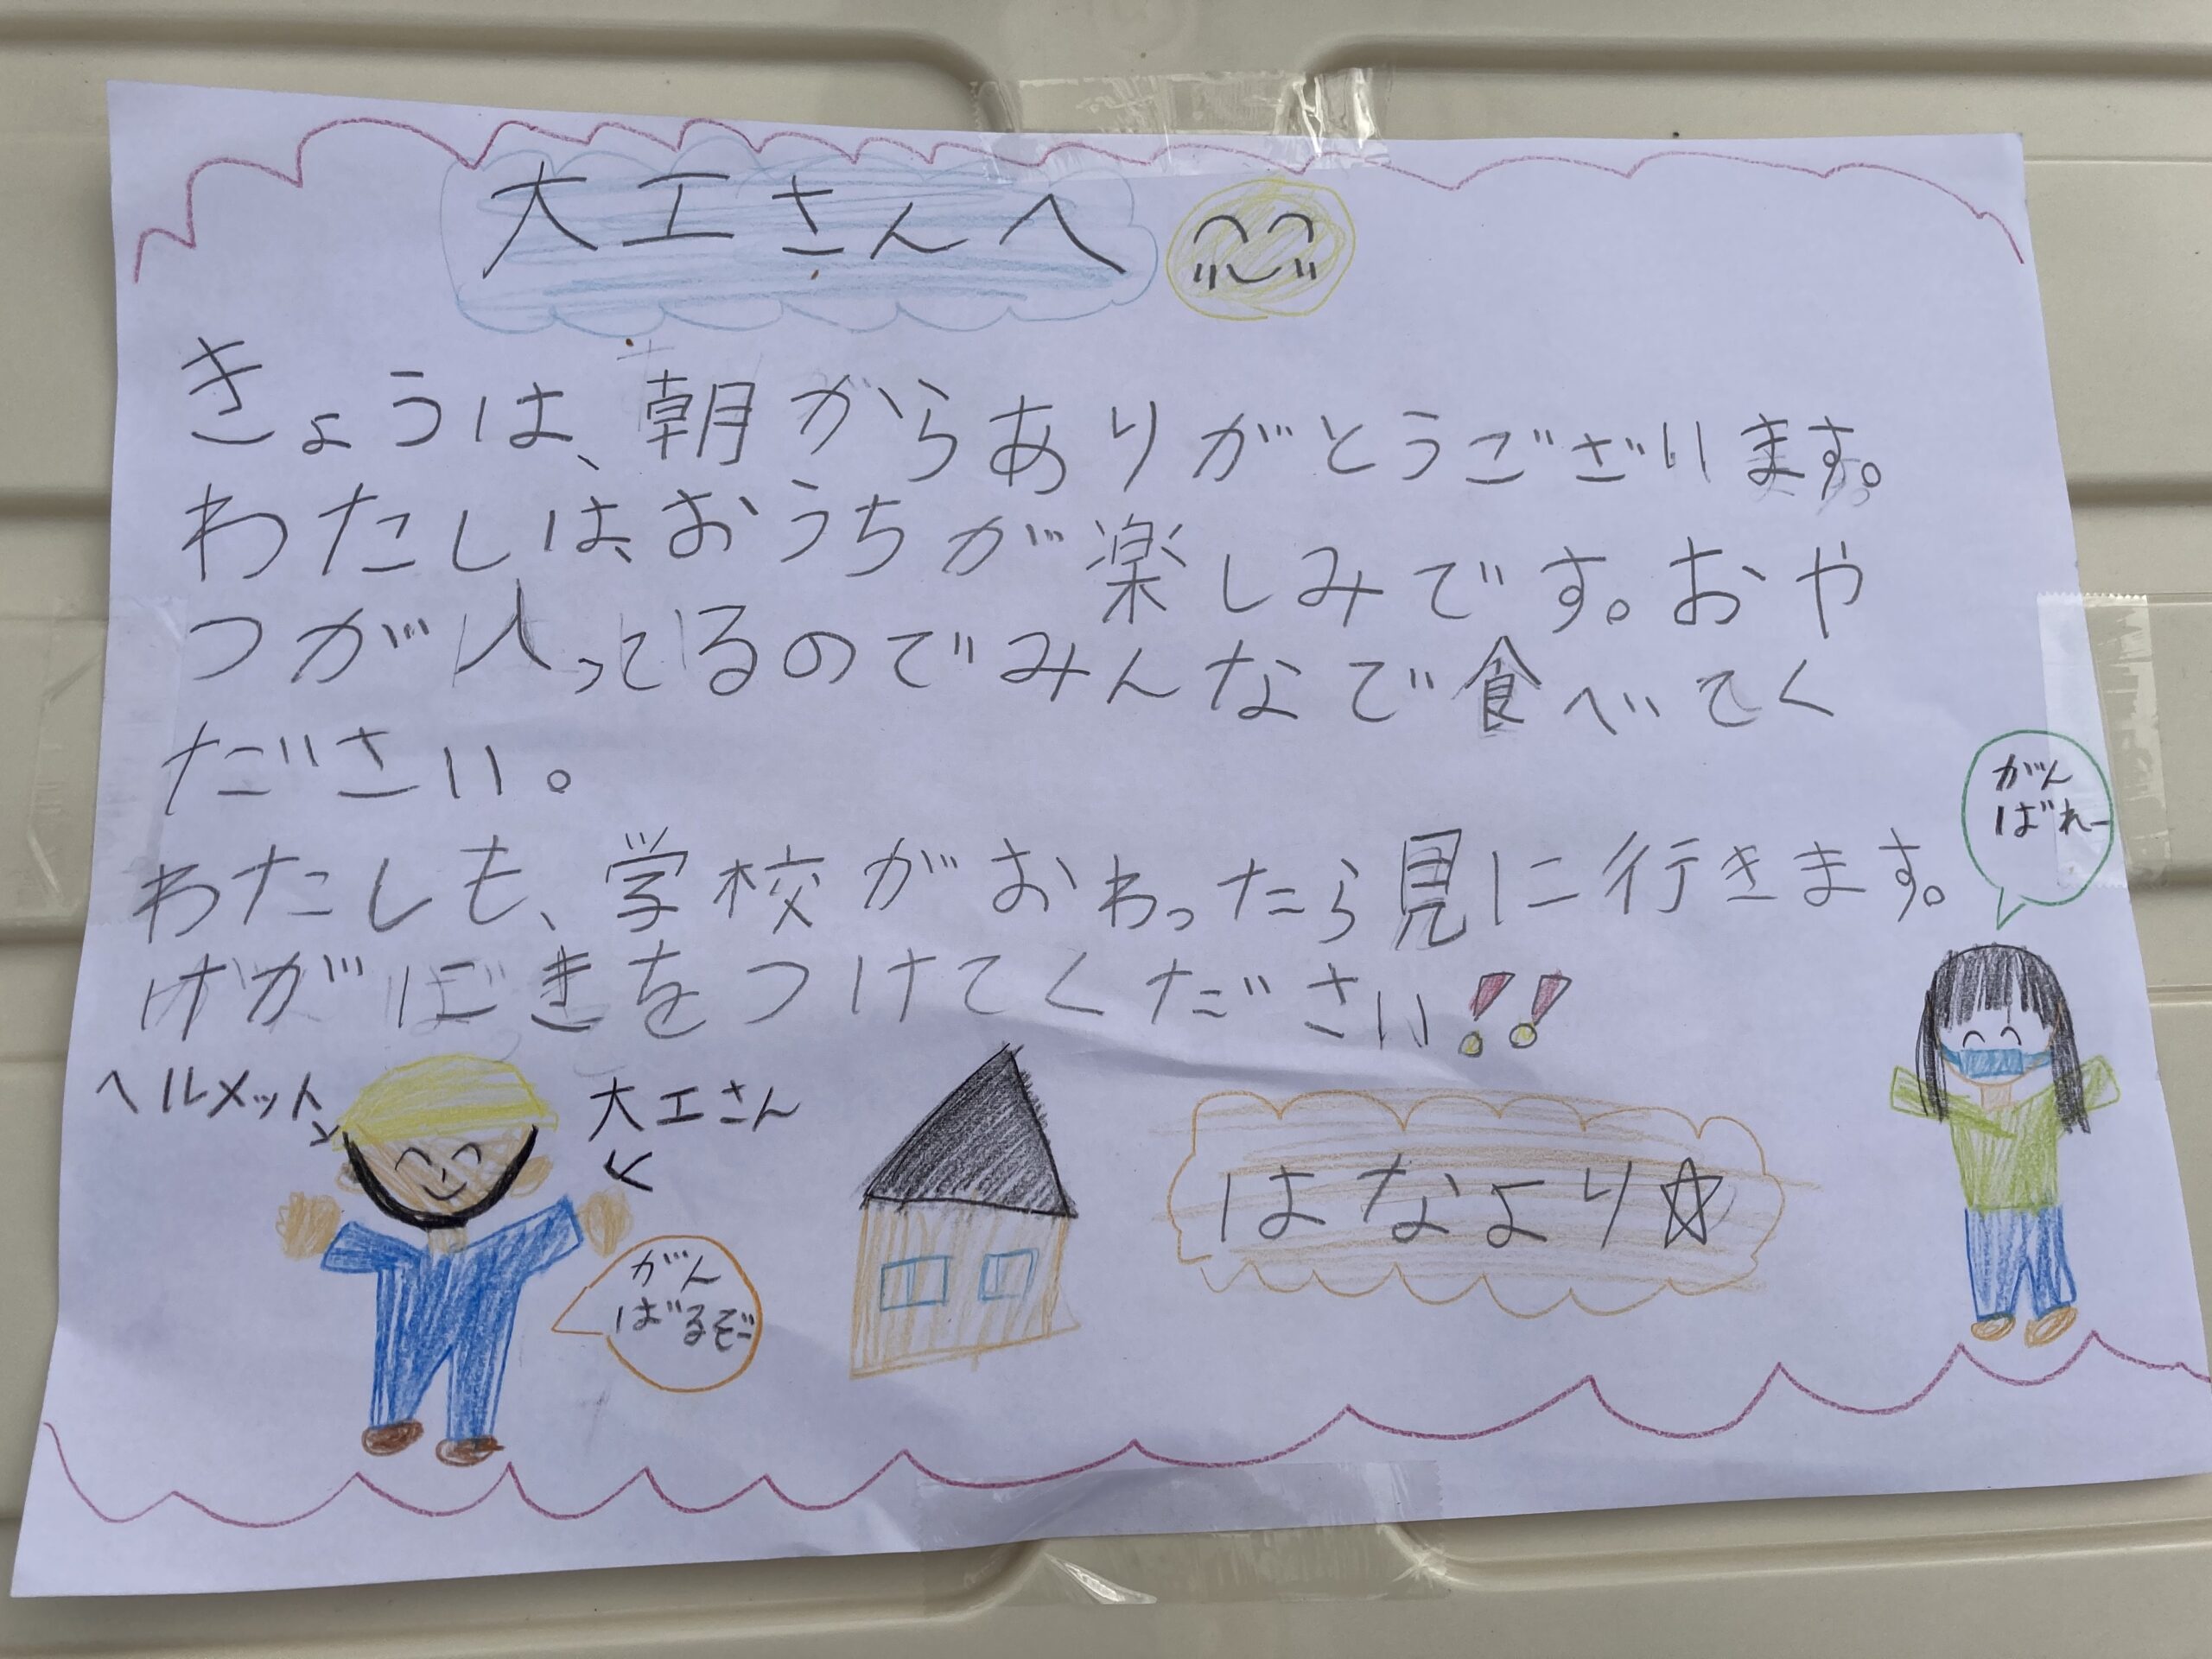 大工さんへ
きょうは、朝からありがとうございます。
わたしは、おうちが楽しみです。おや
つが入ってるのでみんなで食べてく
ださい。
わたしも、学校がおわったら見に行きます。
けがにきをつけてください!!
がん
ばれー
ヘルメット
大工さん
がん
ばるぞー
はなより☆